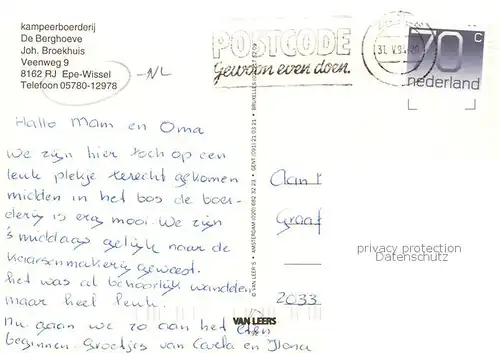 kampeerboerderij
De Berghoeve
Joh. Broekhuis
Veenweg 9
8162 RJ Epe-Wissel
Telefoon 05780-12978
-NL
POSTCODE
Gewoon even doen.
31. V. 9
70 c
nederland
Hallo Mam en Oma
We zijn hier toch op een
leuk plekje terecht gekomen
midden in het bos de boer-
derij is erg mooi. We zijn
's middags gelijk naar de
kaarsenmakerij geweest.
het was al behoorlijk wandelen
maar heel leuk.
Nu gaan we zo aan het eten
beginnen. Groetjes van Carla en Ilona
© VAN LEER'S • AMSTERDAM (020) 692 32 23 • GENT (091) 21 03 21 • BRUXELLES
VAN LEERS
Aan
Graaf
2033
privacy protection
Datenschutz